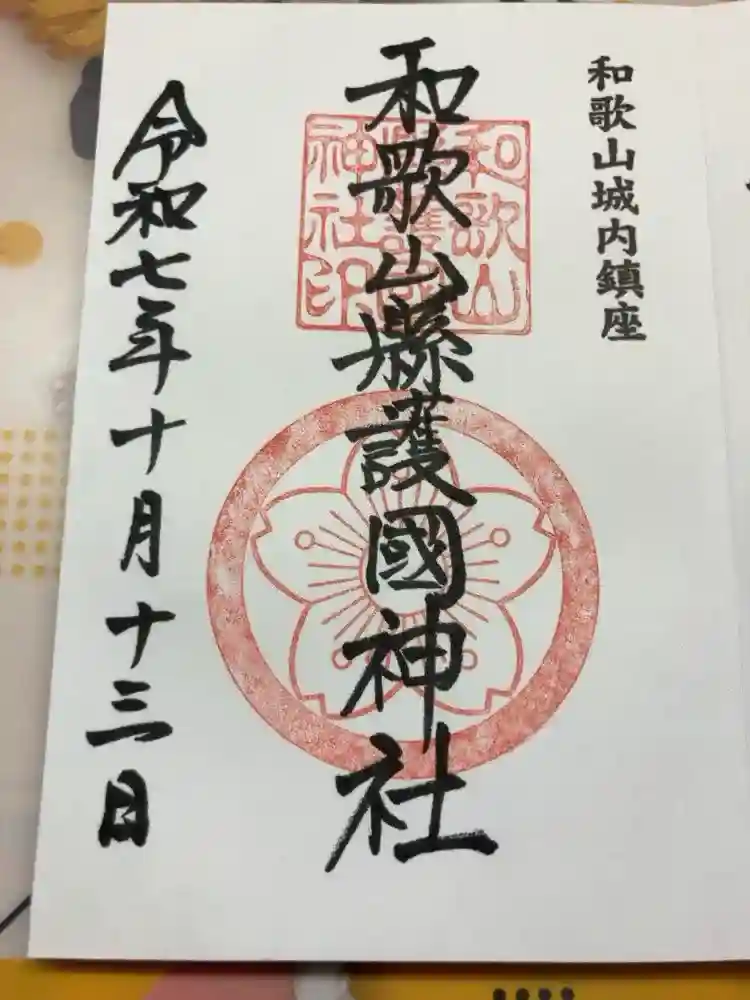 和歌山城内鎮座
和歌山縣護國神社
和歌山
縣護國
神社印
令和七年十月十三日